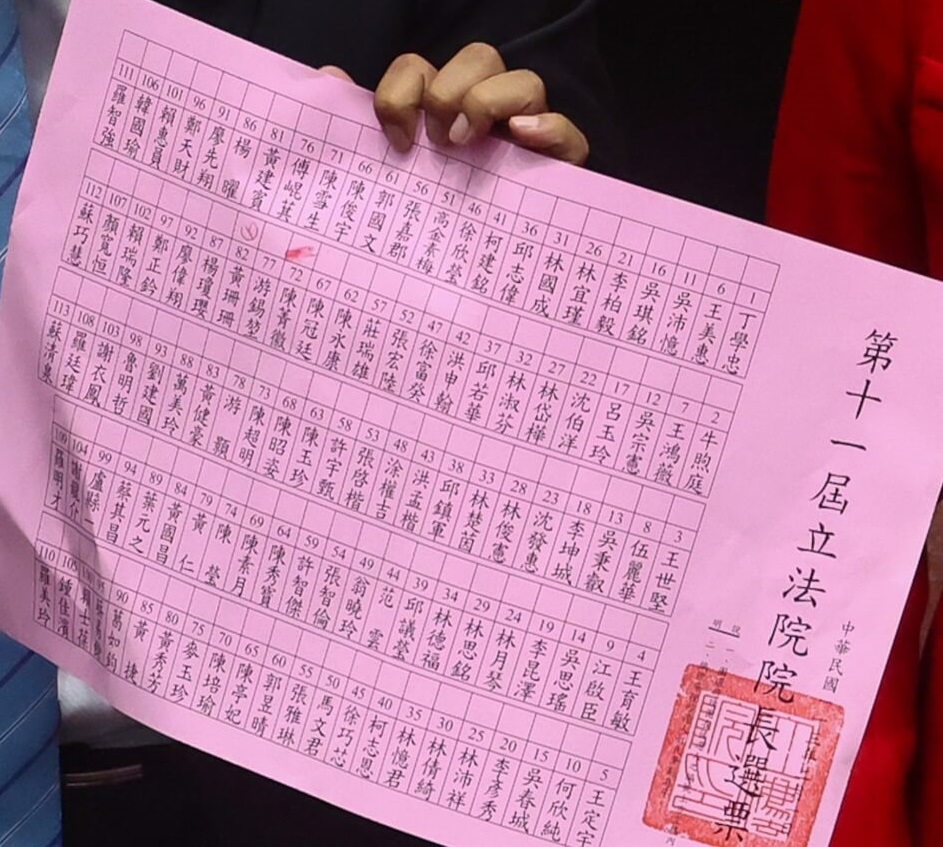 第十一屆立法院院長選票
中華民國
1 丁學忠
6 王美惠
11 吳沛憶
16 吳琪銘
21 李柏毅
26 林宜瑾
31 林國成
36 邱志偉
41 柯建銘
46 徐欣瑩
51 高金素梅
56 張嘉郡
61 郭國文
66 陳俊宇
71 陳雪生
76 傅崐萁
81 黃建賓
86 楊曜
91 廖先翔
96 鄭天財
101 賴惠員
106 韓國瑜
111 羅智強
2 牛煦庭
7 王鴻薇
12 吳宗憲
17 呂玉玲
22 沈伯洋
27 林岱樺
32 林淑芬
37 邱若華
42 洪申翰
47 徐富癸
52 張宏陸
57 莊瑞雄
62 陳永康
67 陳冠廷
72 陳菁徽
77 游錫堃
82 黃珊珊
87 楊瓊瓔
92 廖偉翔
97 鄭正鈐
102 賴瑞隆
107 顏寬恒
112 蘇巧慧
3 王世堅
8 伍麗華
13 吳秉叡
18 李坤城
23 沈發惠
28 林俊憲
33 林楚茵
38 邱鎮軍
43 洪孟楷
48 涂權吉
53 張啓楷
58 許宇甄
63 陳玉珍
68 陳昭姿
73 陳超明
78 游顥
83 黃健豪
88 萬美玲
93 劉建國
98 魯明哲
103 謝衣鳳
108 羅廷瑋
113 蘇清泉
4 王育敏
9 江啟臣
14 吳思瑤
19 李昆澤
24 林月琴
29 林思銘
34 林德福
39 邱議瑩
44 范雲
49 翁曉玲
54 張智倫
59 許智傑
64 陳秀寳
69 陳素月
74 陳瑩
79 黃仁
84 黃國昌
89 葉元之
94 蔡其昌
99 盧縣一
104 謝龍介
109 羅明才
5 王定宇
10 何欣純
15 吳春城
20 李彥秀
25 林沛祥
30 林倩綺
35 林憶君
40 柯志恩
45 徐巧芯
50 馬文君
55 張雅琳
60 郭昱晴
65 陳亭妃
70 陳培瑜
75 麥玉珍
80 黃秀芳
85 黃捷
90 葛如鈞
100 賴士葆
105 鍾佳濱
110 羅美玲